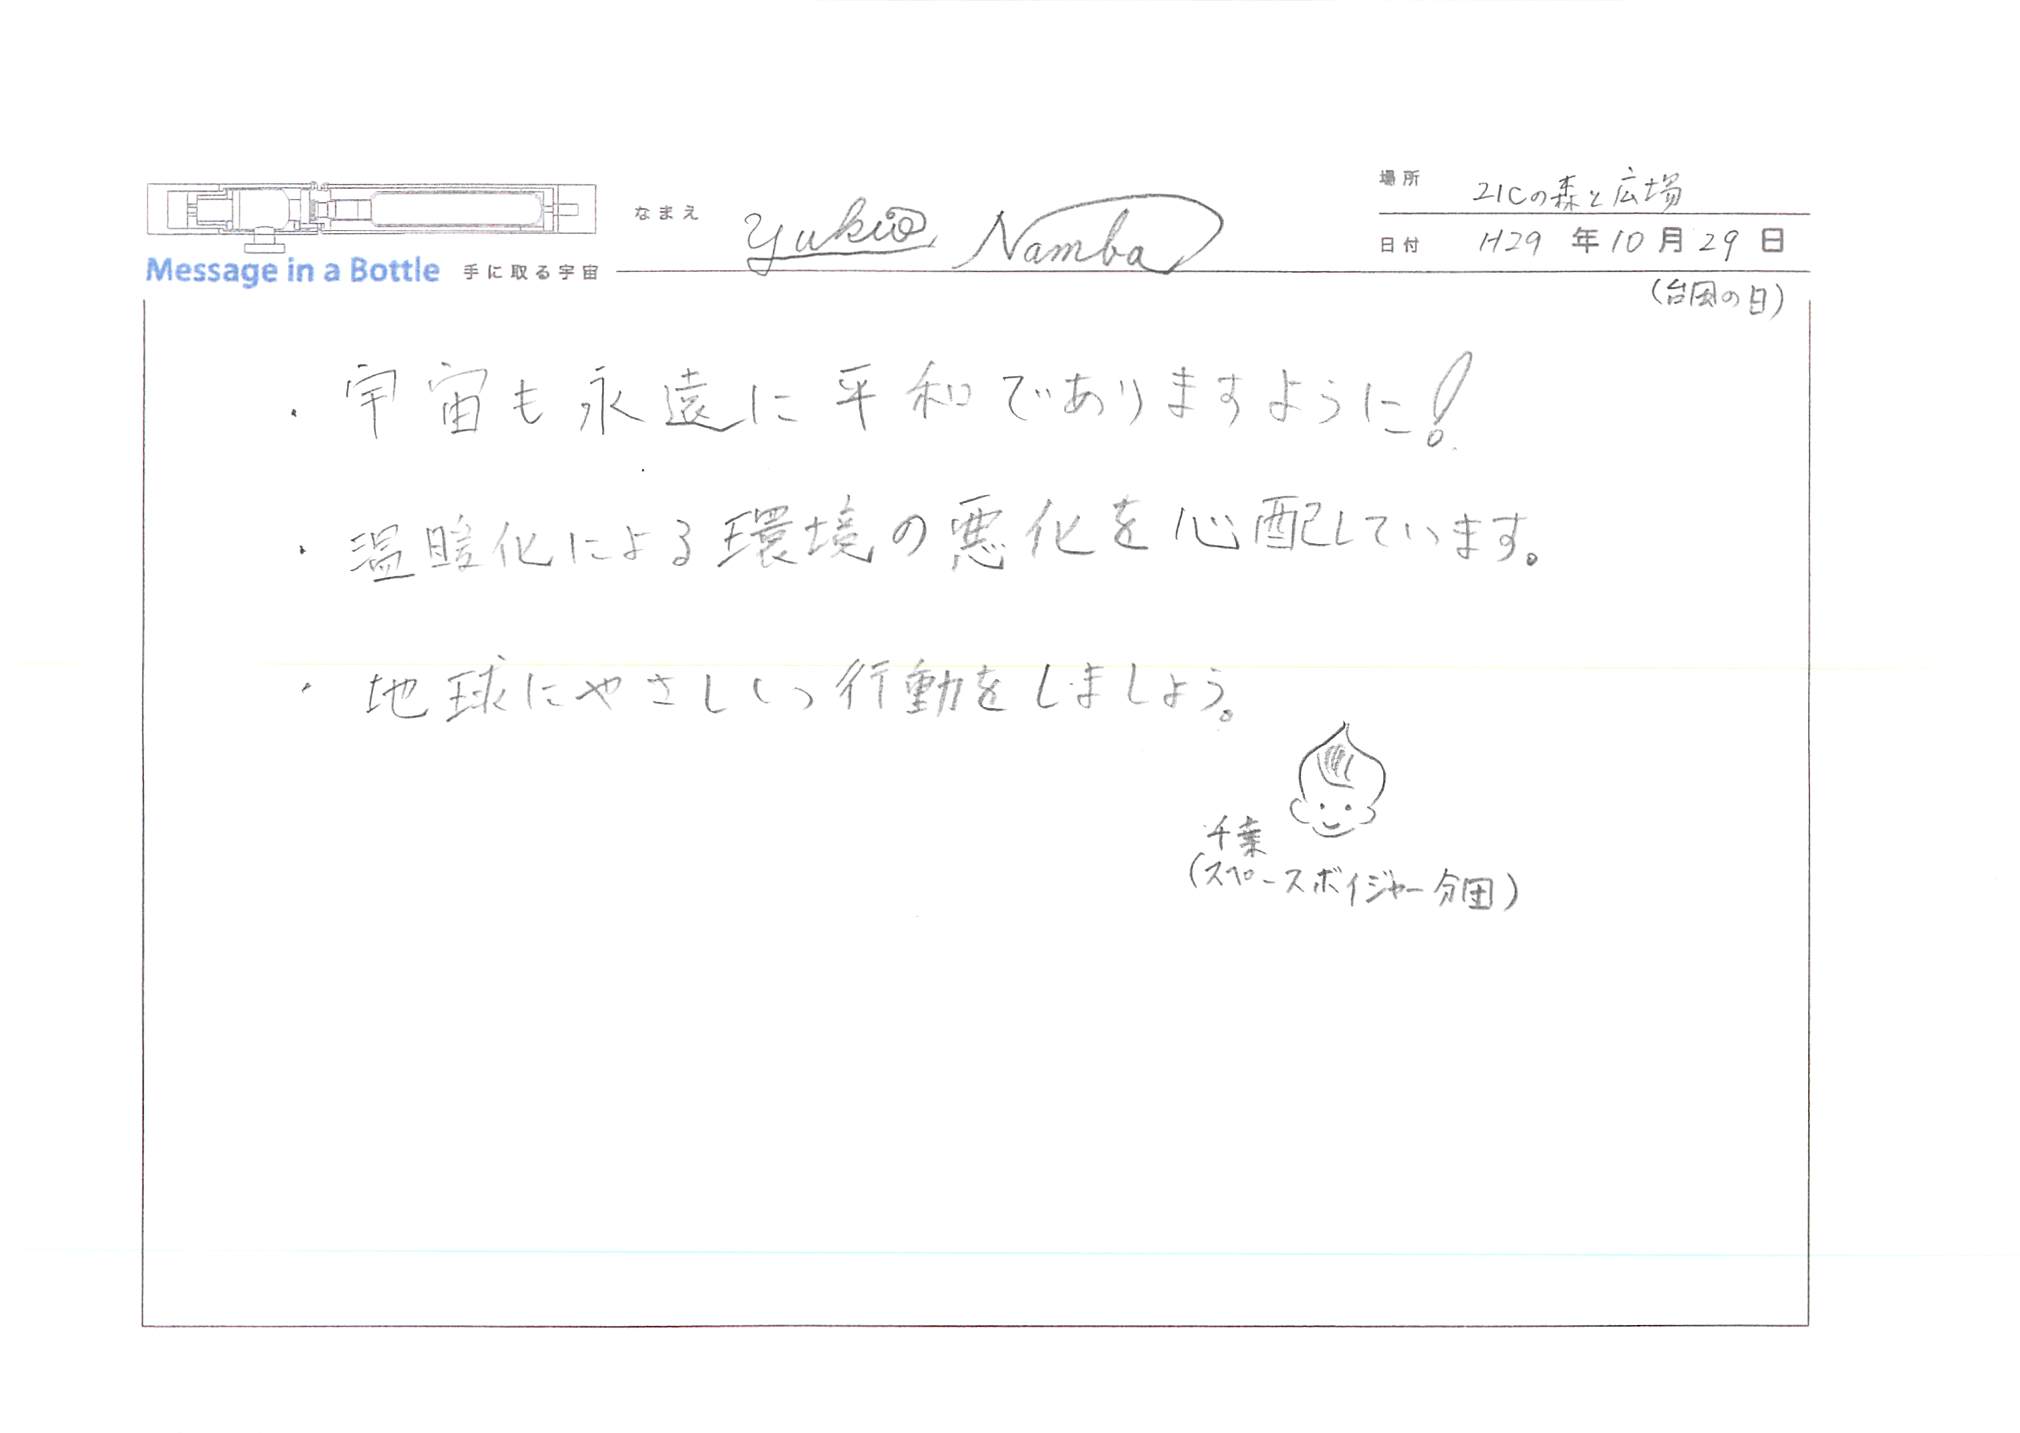 場所 21Cの森と広場
なまえ Yukio Namba
日付 H29 年 10 月 29 日
Message in a Bottle 手に取る宇宙
(台風の日)
・宇宙も永遠に平和でありますように!
・温暖化による環境の悪化を心配しています。
・地球にやさしい行動をしましょう。
千葉
(スペースボイジャー分団)